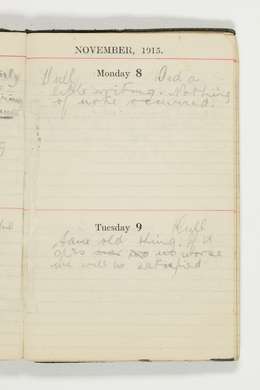 NOVEMBER, 1915.
Monday 8
Did a
little writing. Nothing
of note occurred.
Tuesday 9
Same old thing. If it
gets no worse
we will be satisfied